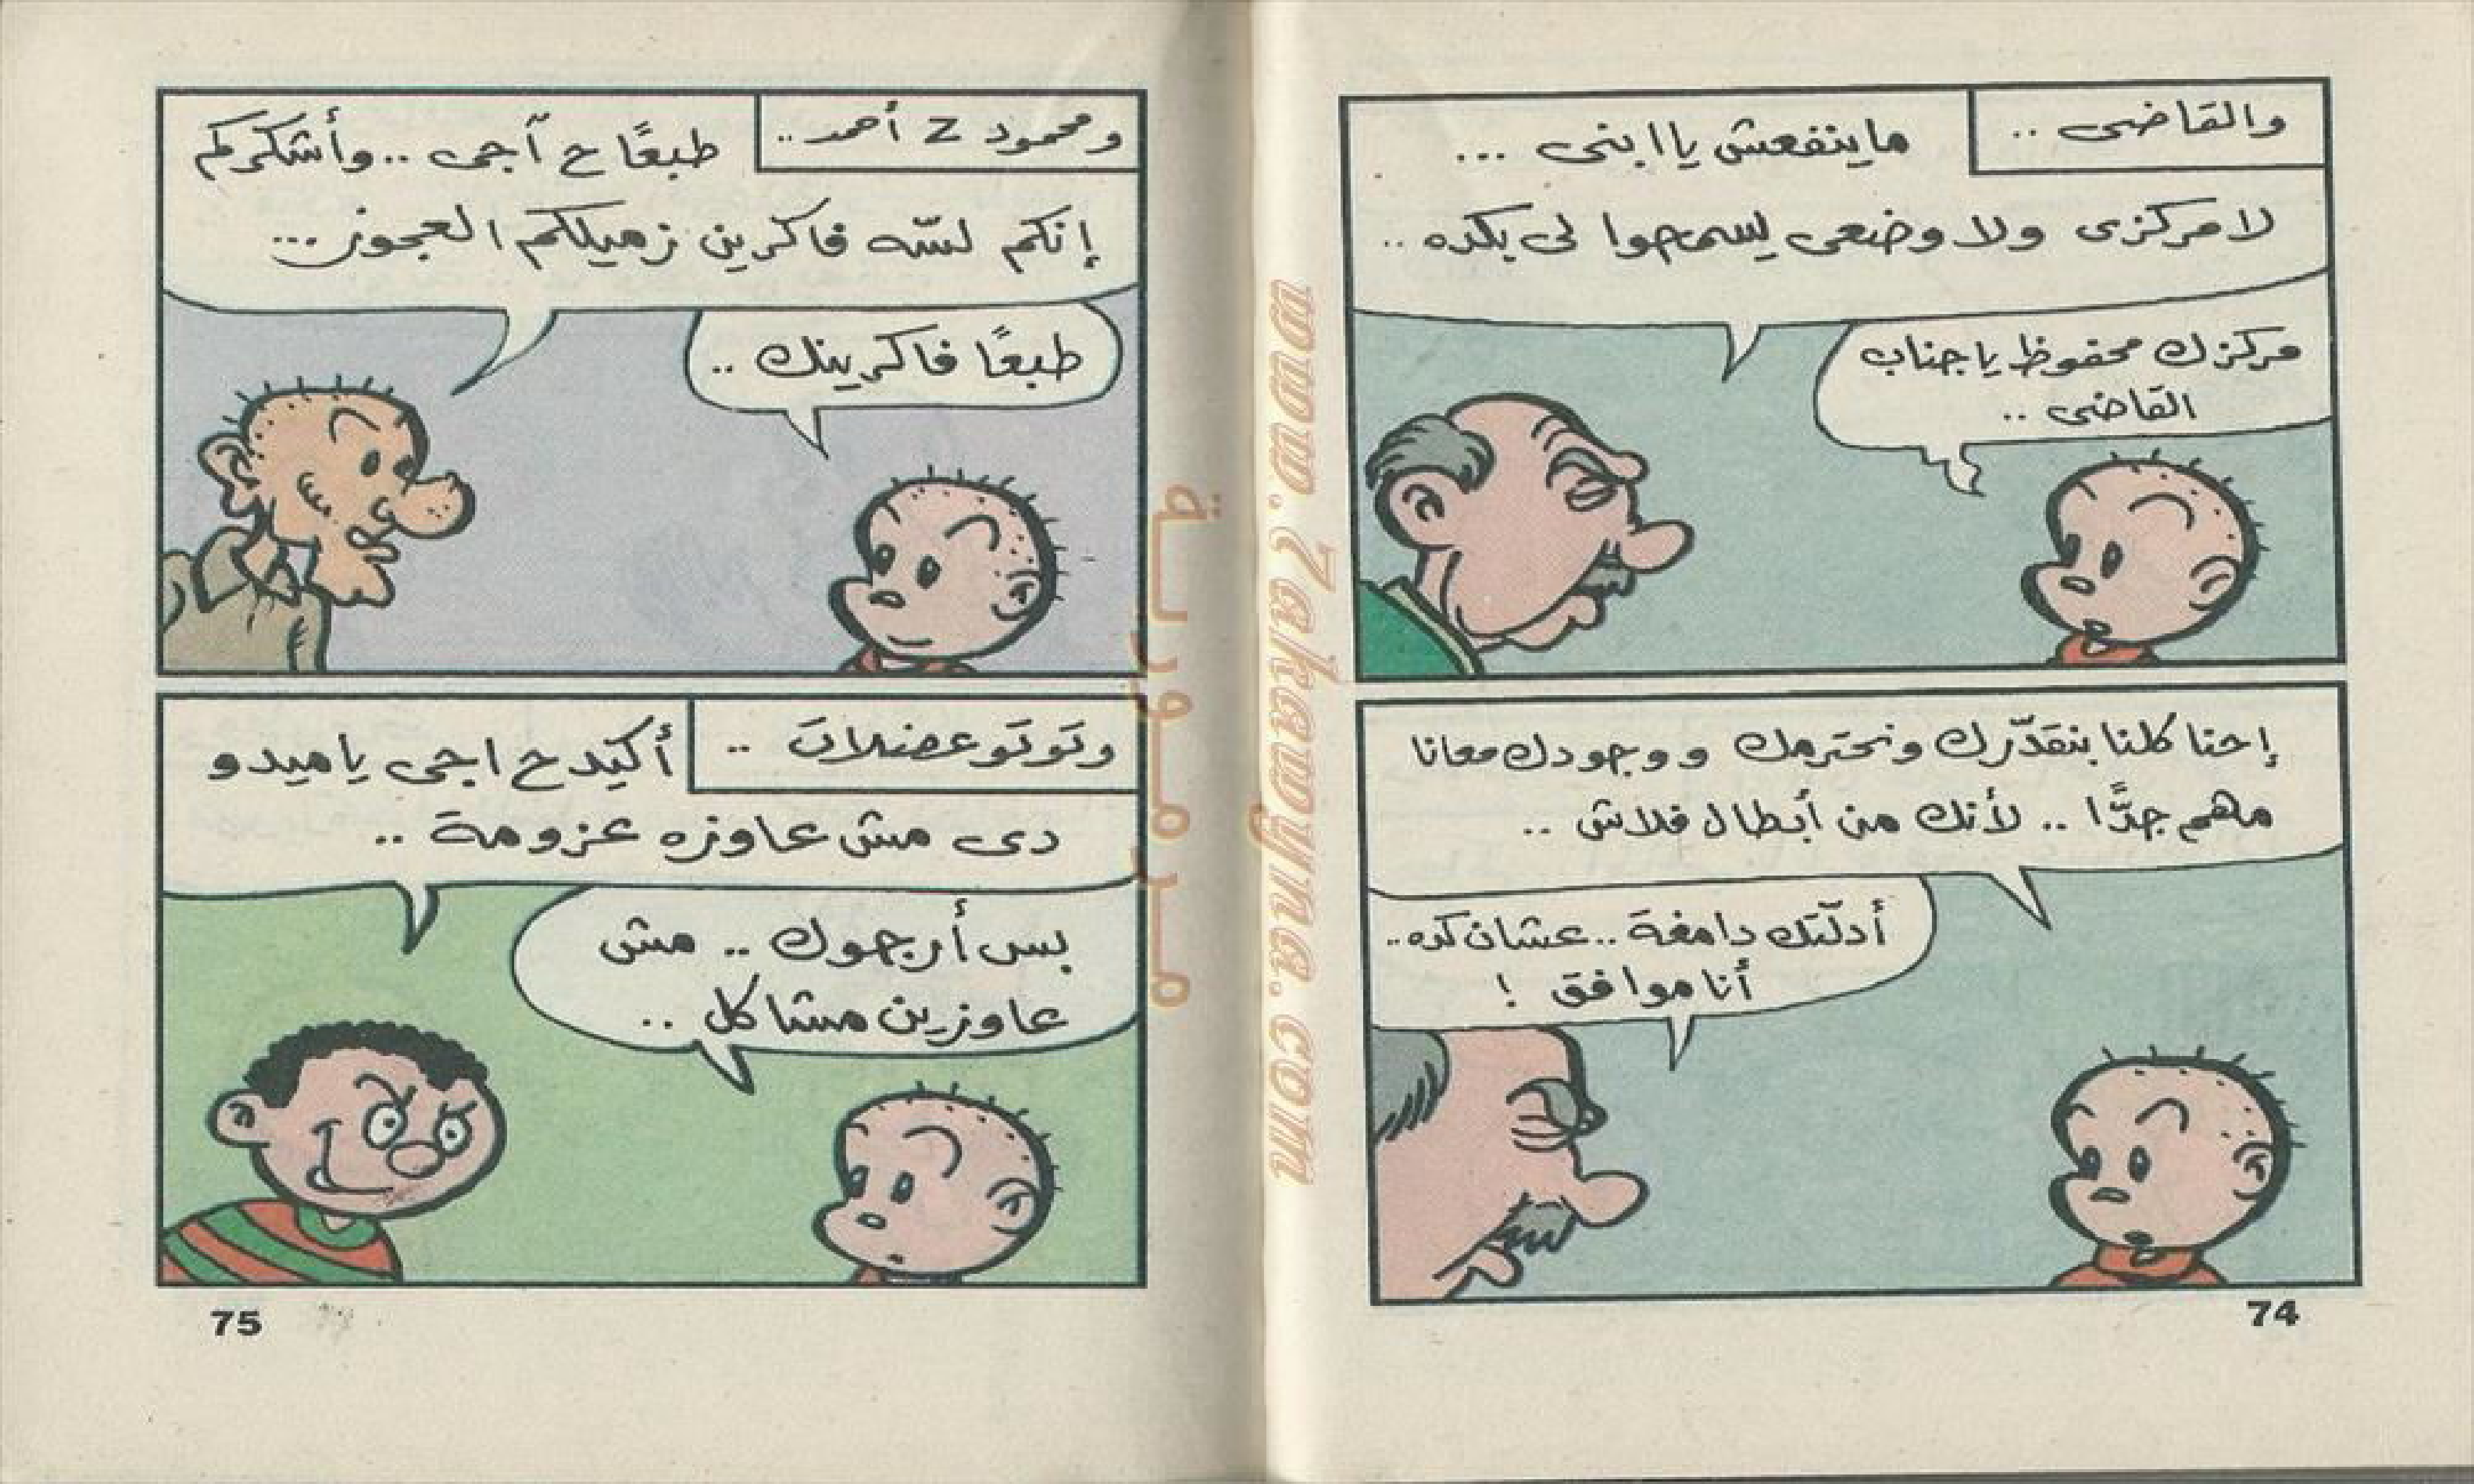 والقاضى ..
ماينفعش ياابنى ...
لامركزى ولا وضعى يسمحوا لى بكده ..
مركزك محفوظ ياجناب
القاضى ..
إحنا كلنا بنقدّرك ونحترمك ووجودك معانا
مهم جدًّا .. لأنك من أبطال فلاش ..
أدلّتك دامغة .. عشان كده ..
أنا موافق !
74
ومحمود z أحمد ..
طبعًا ح آجى .. وأشكركم
إنكم لسّه فاكرين زميلكم العجوز ...
طبعًا فاكرينك ..
وتوتو عضلات ..
أكيد ح اجى ياميدو
دى مش عاوزه عزومة ..
بس أرجوك .. مش
عاوزين مشاكل ..
75
www.7akawyna.com